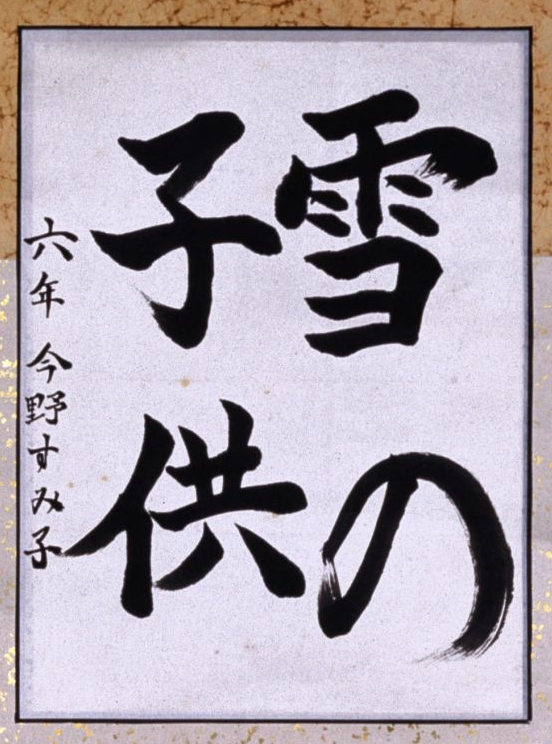 雪の
子供
六年 今野すみ子